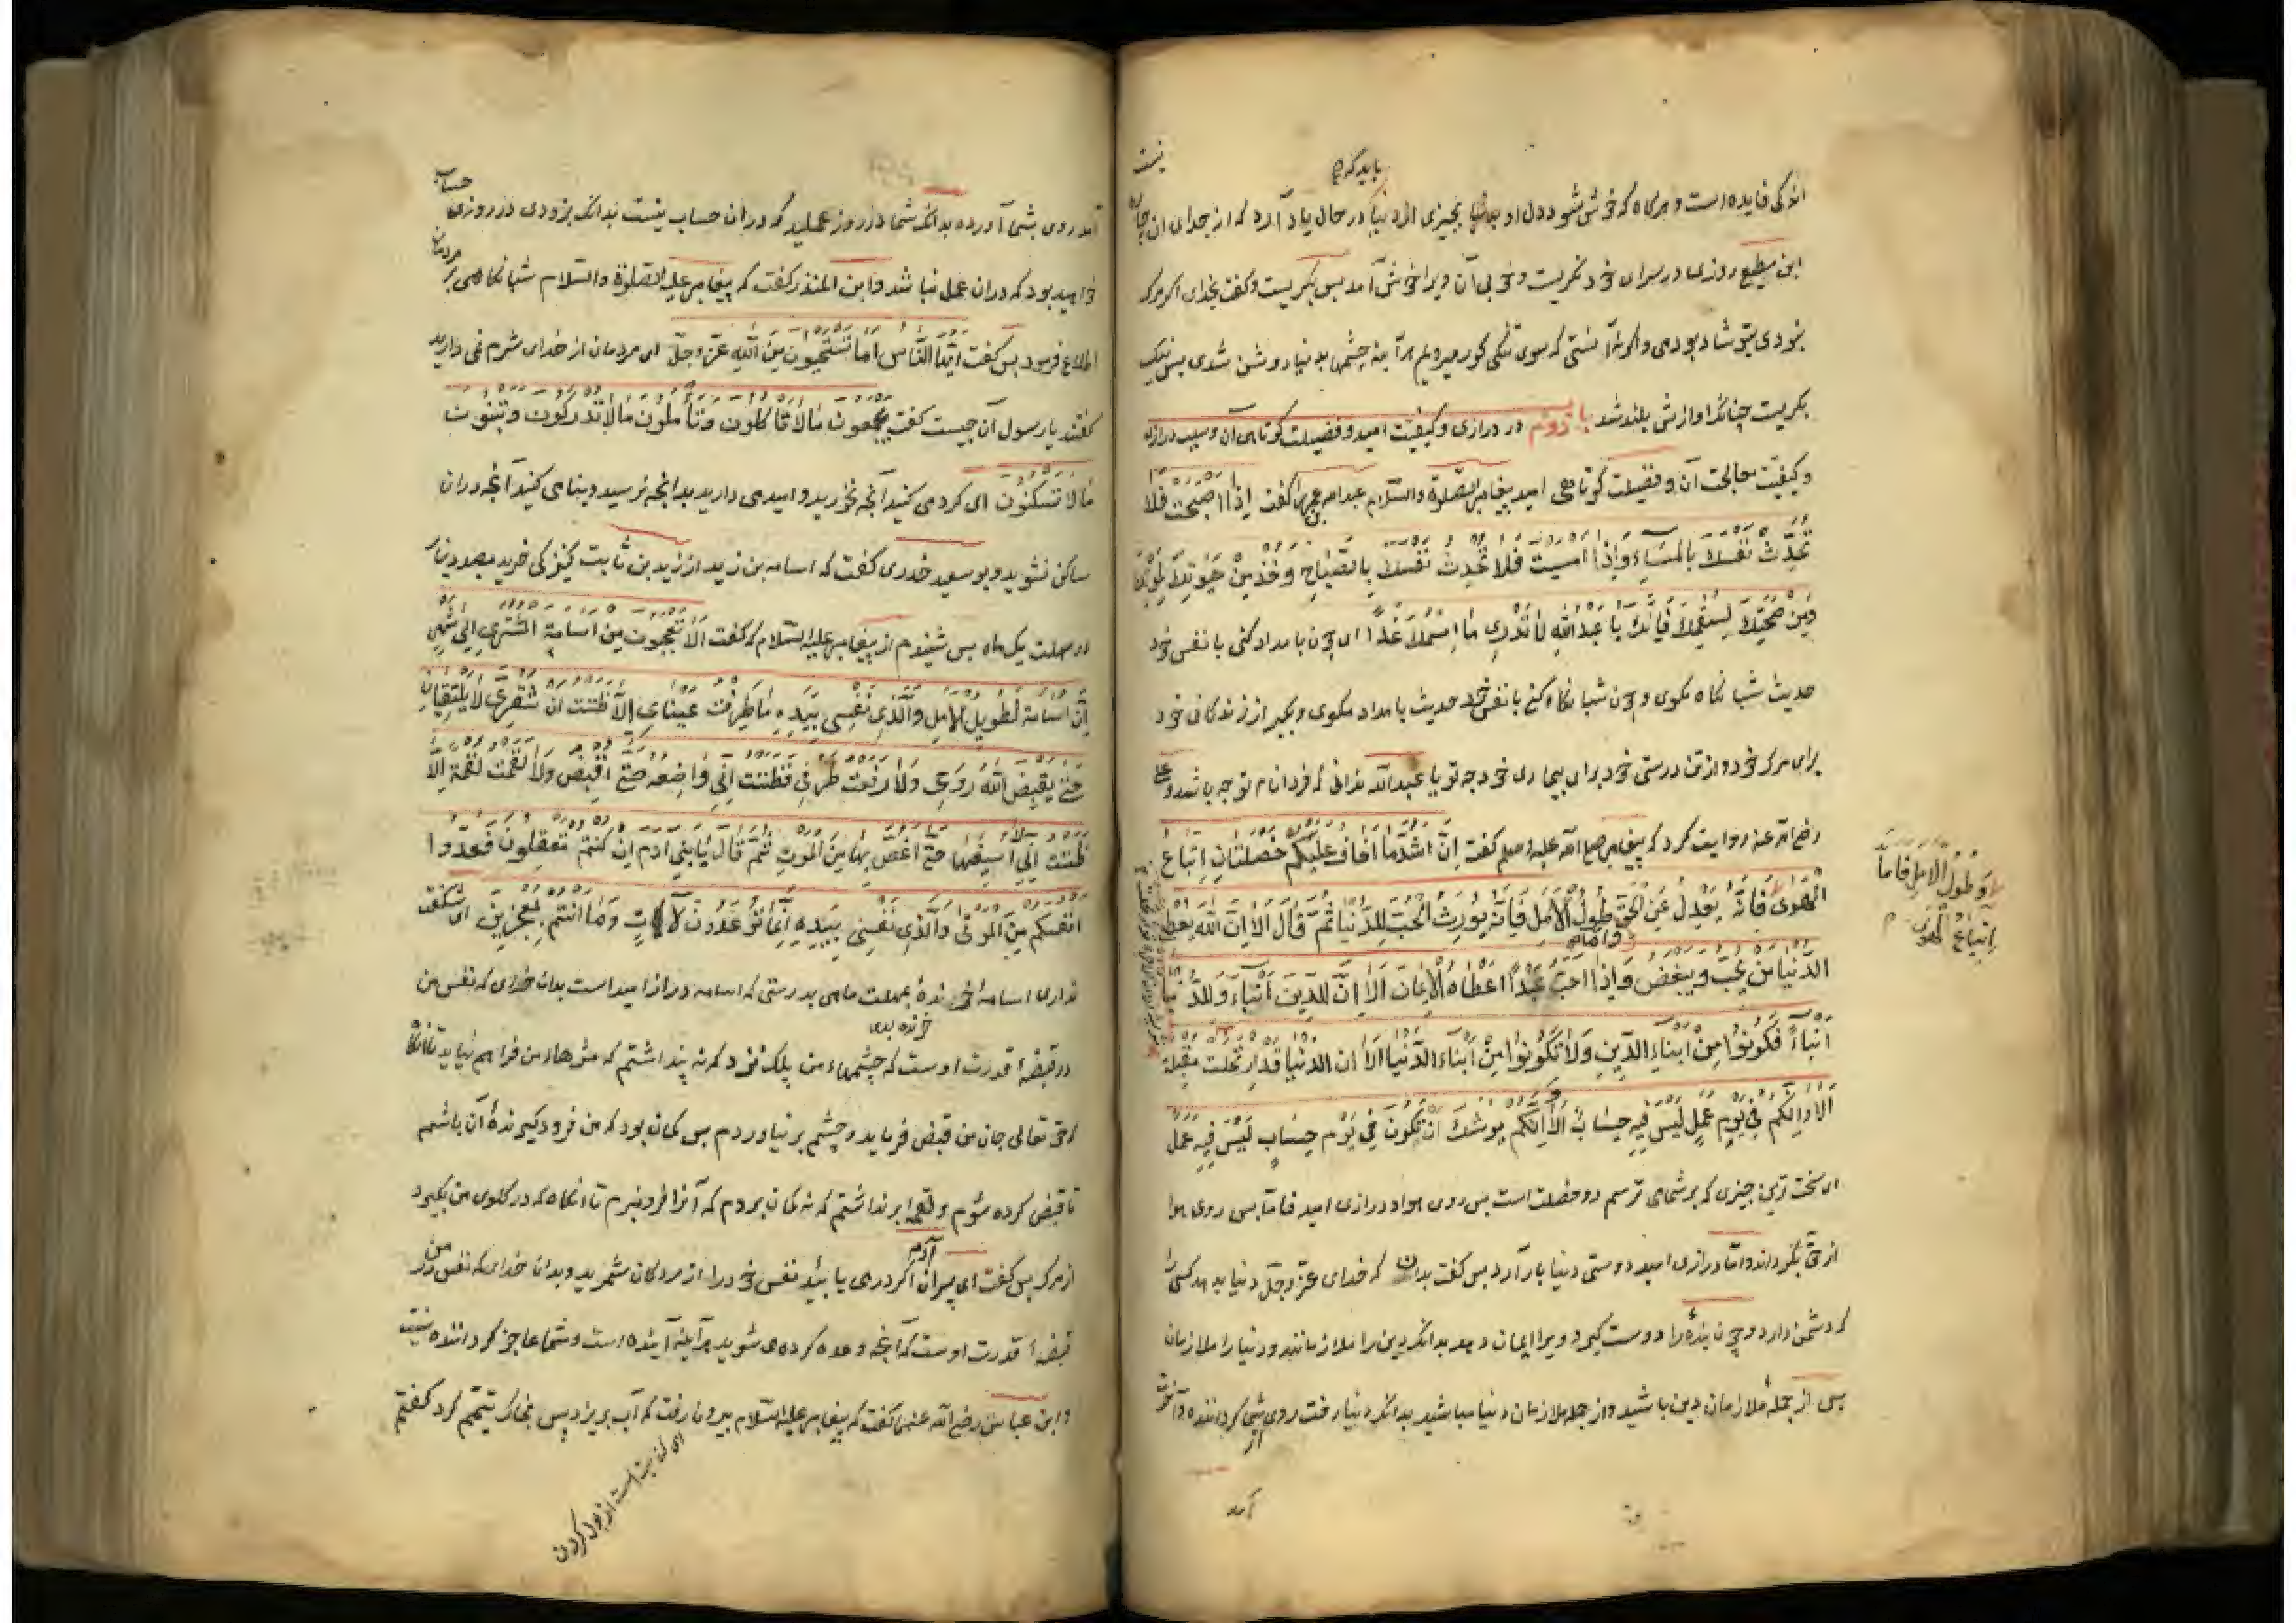 نیست
باید که
اندکی فایده است و هرگاه که خوش شود دل او بچیزی از دنیا در حال یاد آرد که از جدای آن چاره
ابن مطیع روزی در سرای خود نگریست و خوبی آن ویرا خوش آمد پس بگریست و گفت بخدای اگر مرگ
نبودی بتو شاد بودمی و اگر نه آنستی که سوی تنگی گور میرویم هر آینه چشمها بدنیا روشن شدی پس نیک
بگریست چنانکه آوازش بلند شد باب دوم در درازی و کیفیت امید و فضیلت کوتاهی آن و سبب درازی
و کیفیت معالجت آن و فضیلت کوتاهی امید پیغامبر علیه الصلوة والسلام عبدالله بن عمر را گفت إذا أصبحت فلا
تحدث نفسك بالمساء وإذا أمسيت فلا تحدث نفسك بالصباح وخذ من حيوتك لموتك
ومن صحتك لسقمك فإنك يا عبد الله لا تدري ما اسمك غدا ای چون بامداد کنی با نفس خود
حدیث شبانگاه مگوی و چون شبانگاه کنی با نفس خود حدیث بامداد مگوی و بگیر از زندگانی خود
برای مرگ خود و از تن درستی خود برای بیماری خود چه تو یا عبد الله ندانی که فردا نام تو چه باشد و علی
رضی الله عنه روایت کرد که پیغامبر صلی الله علیه وسلم گفت إن أشد ما أخاف عليكم خصلتان اتباع
الهوى فإنه يعدل عن الحق وأما طول الأمل فإنه يورث الحب للدنيا ثم قال ألا إن الله يعطي
الدنيا من يحب ويبغض وإذا أحب عبدا أعطاه الإيمان ألا إن للدين أبناء وللدنيا
أبناء فكونوا من أبناء الدين ولا تكونوا من أبناء الدنيا ألا إن الدنيا قد ارتحلت مقبلة
ألا وإنكم في يوم عمل ليس فيه حساب ألا وإنكم يوشك أن تكون في يوم حساب ليس فيه عمل
ای سخت ترین چیزی که بر شما می ترسم دو خصلت است پس روی هوا و درازی امید فاما پس روی هوا
از حق بگرداند و اما درازی امید دوستی دنیا بار آرد پس گفت بدان که خدای عز و جل دنیا بدهد کسی را
که دشمن دارد و چون بنده را دوست گیرد ویرا ایمان دهد بدانکه دین را ملازمانند و دنیا را ملازمان
پس از جمله ملازمان دین باشید و از جمله ملازمان دنیا مباشید بدانکه دنیا رفت روی گرداننده و آخرت
آمد
وطول الأمل فأما
اتباع الهوى
حساب
آمد روی بشما آورده بدانکه شما در روز عملید که در آن حساب نیست بدانکه بزودی در روزی
خواهید بود که در آن عمل نباشد و ابن المنذر گفت که پیغامبر علیه الصلوة والسلام شبانگاهی بر مردمان
اطلاع فرمود پس گفت أيها الناس أما تستحيون من الله عز وجل ای مردمان از خدای شرم نمی دارید
گفتند یا رسول آن چیست گفت تجمعون ما لا تأكلون وتأملون ما لا تدركون وتبنون
ما لا تسكنون ای گرد می کنید آنچه نخورید و امید می دارید بدانچه نرسید و بنا می کنید آنچه در آن
ساکن نشوید و بو سعید خدری گفت که اسامه بن زید از زید بن ثابت کنیزکی خرید بصد دینار
در مهلت یک ماه پس شنیدم از پیغامبر علیه السلام که گفت ألا تعجبون من أسامة المشتري إلى شهر
إن أسامة لطويل الأمل والذي نفسي بيده ما طرفت عيناي إلا ظننت أن شفري لا يلتقيان
حتى يقبض الله روحي ولا رفعت طرفي فظننت أني واضعه حتى أقبض ولا لقمت لقمة إلا
ظننت أني أسيغها حتى أغص بها من الموت ثم قال يا بني آدم إن كنتم تعقلون فعدوا
أنفسكم من الموتى والذي نفسي بيده إنما توعدون لآت وما أنتم بمعجزين ای شگفت
نداری اسامه خرنده بمهلت ماهی بدرستی که اسامه دراز امید است بدان خدای که نفس من
در قبضه قدرت اوست که چشمهاء من پلک نزد که نه پنداشتم که مژهاء من فراهم نیاید تا آنگاه
که حق تعالی جان من قبض فرماید و چشم بر نیاوردم پس گمان بود که من فرود گیرنده آن باشم
تا قبض کرده شوم و لقمه بر نداشتم که نه گمان بردم که آنرا فرو نبرم تا آنگاه که در گلوی من بگیرد
از مرگ پس گفت ای پسران آدم اگر دری یابید نفس خود را از مردگان شمرید و بدان خدای که نفس من در
قبضه قدرت اوست که آنچه وعده کرده می شوید هر آینه آینده است و شما عاجز گرداننده نیستید
و ابن عباس رضی الله عنهما گفت که پیغامبر علیه السلام بیرون رفت که آب بریزد پس بخاک تیمم کرد گفتم
ای کنایت است از بول کردن